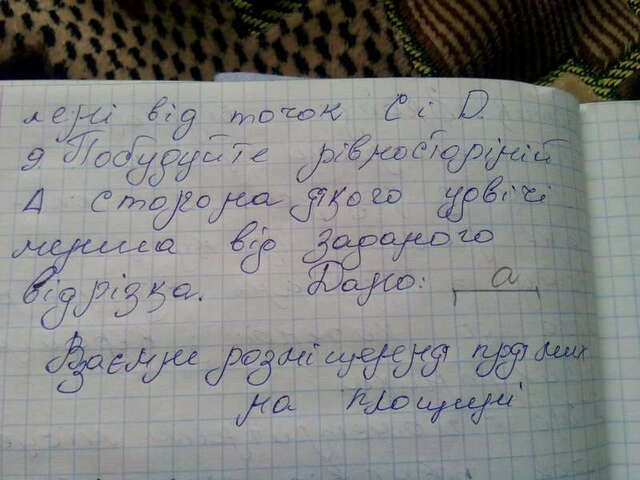 лені від точок С і D.
9 Побудуйте рівносторіній
Δ сторона якого удвічі
менша від заданого
відрізка. Дано: а
Взаємне розміщення прямих
на площині